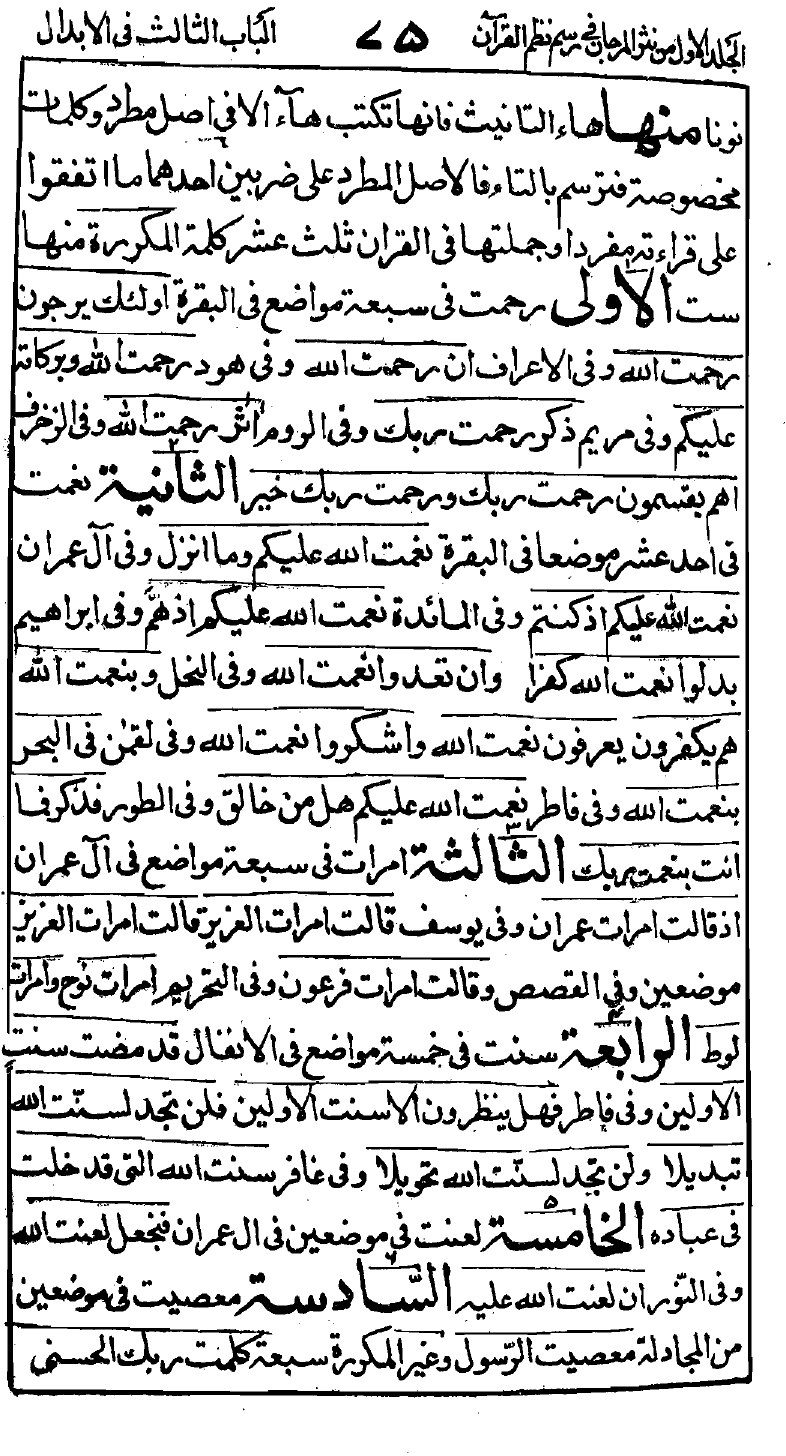 الجلد الاول من نثر المرجان في رسم نظم القرآن ٧٥ الباب الثالث فى الابدال
نونا منها هاء التانيث فانها تكتب هآء الا في اصل مطرد وكلمات
مخصوصة فترسم بالتاء فالاصل المطرد على ضربين احدهما ما اتفقوا
على قراءته مفردا وجملتها فى القران ثلث عشر كلمة المكررة منها
ست الاولى رحمت فى سبعة مواضع فى البقرة اولئك يرجون
رحمت الله وفى الاعراف ان رحمت الله وفى هود رحمت الله وبركاته
عليكم وفى مريم ذكر رحمت ربك وفى الروم اثر رحمت الله وفى الزخرف
اهم يقسمون رحمت ربك ورحمت ربك خير الثانية نعمت
فى احد عشر موضعا فى البقرة نعمت الله عليكم وما انزل وفى آل عمران
نعمت الله عليكم اذ كنتم وفى المائدة نعمت الله عليكم اذ همّ وفى ابراهيم
بدلوا نعمت الله كفرا وان تعدوا نعمت الله وفى النحل وبنعمت الله
هم يكفرون يعرفون نعمت الله واشكروا نعمت الله وفى لقمٰن فى البحر
بنعمت الله وفى فاطر نعمت الله عليكم هل من خالق وفى الطور فذكر فما
انت بنعمت ربك الثالثة امرات فى سبعة مواضع فى آل عمران
اذ قالت امرات عمران وفى يوسف قالت امرات العزيز قالت امرات العزيز
موضعين وفى القصص وقالت امرات فرعون وفى التحريم امرات نوح وامرات
لوط الرابعة سنت فى خمسة مواضع فى الانفال قد مضت سنت
الاولين وفى فاطر فهل ينظرون الا سنت الاولين فلن تجد لسنّت الله
تبديلا ولن تجد لسنّت الله تحويلا وفى غافر سنت الله التى قد خلت
فى عباده الخامسة لعنت فى موضعين فى ال عمران فنجعل لعنت الله
وفى النّور ان لعنت الله عليه السّادسة معصيت فى موضعين
من المجادلة معصيت الرّسول وغير المكررة سبعة كلمت ربك الحسنى